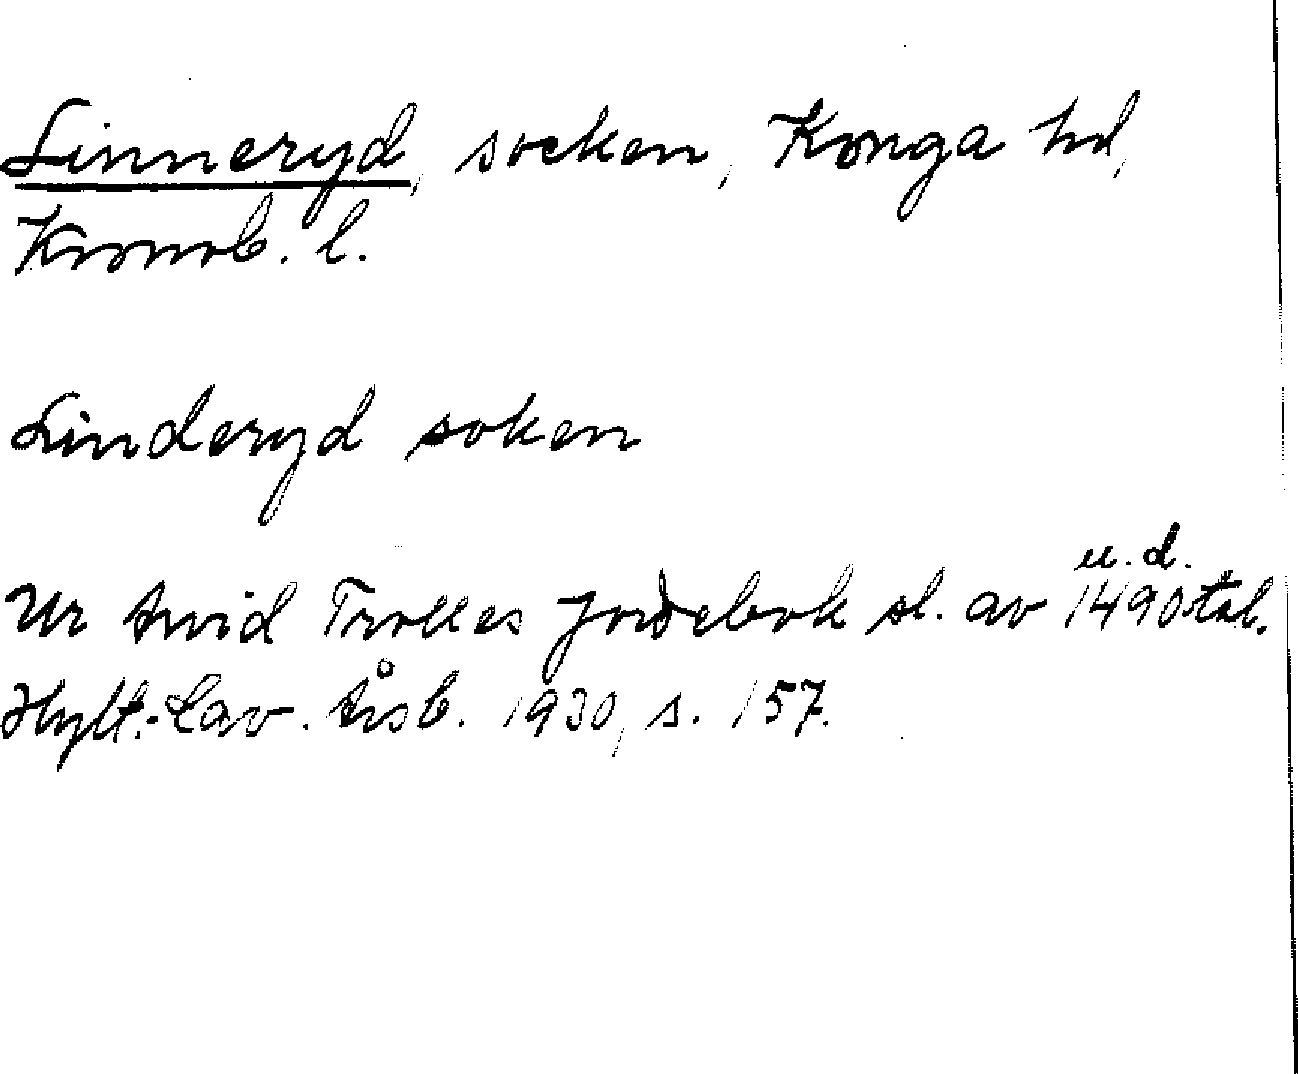 Linneryd, socken, Konga hd,
Kronob. l.
Linderyd soken
u. d.
Ur Arvid Trolles jordebok sl. av 1490-tal.
Hylt.-Cav. Årsb. 1930, s. 157.